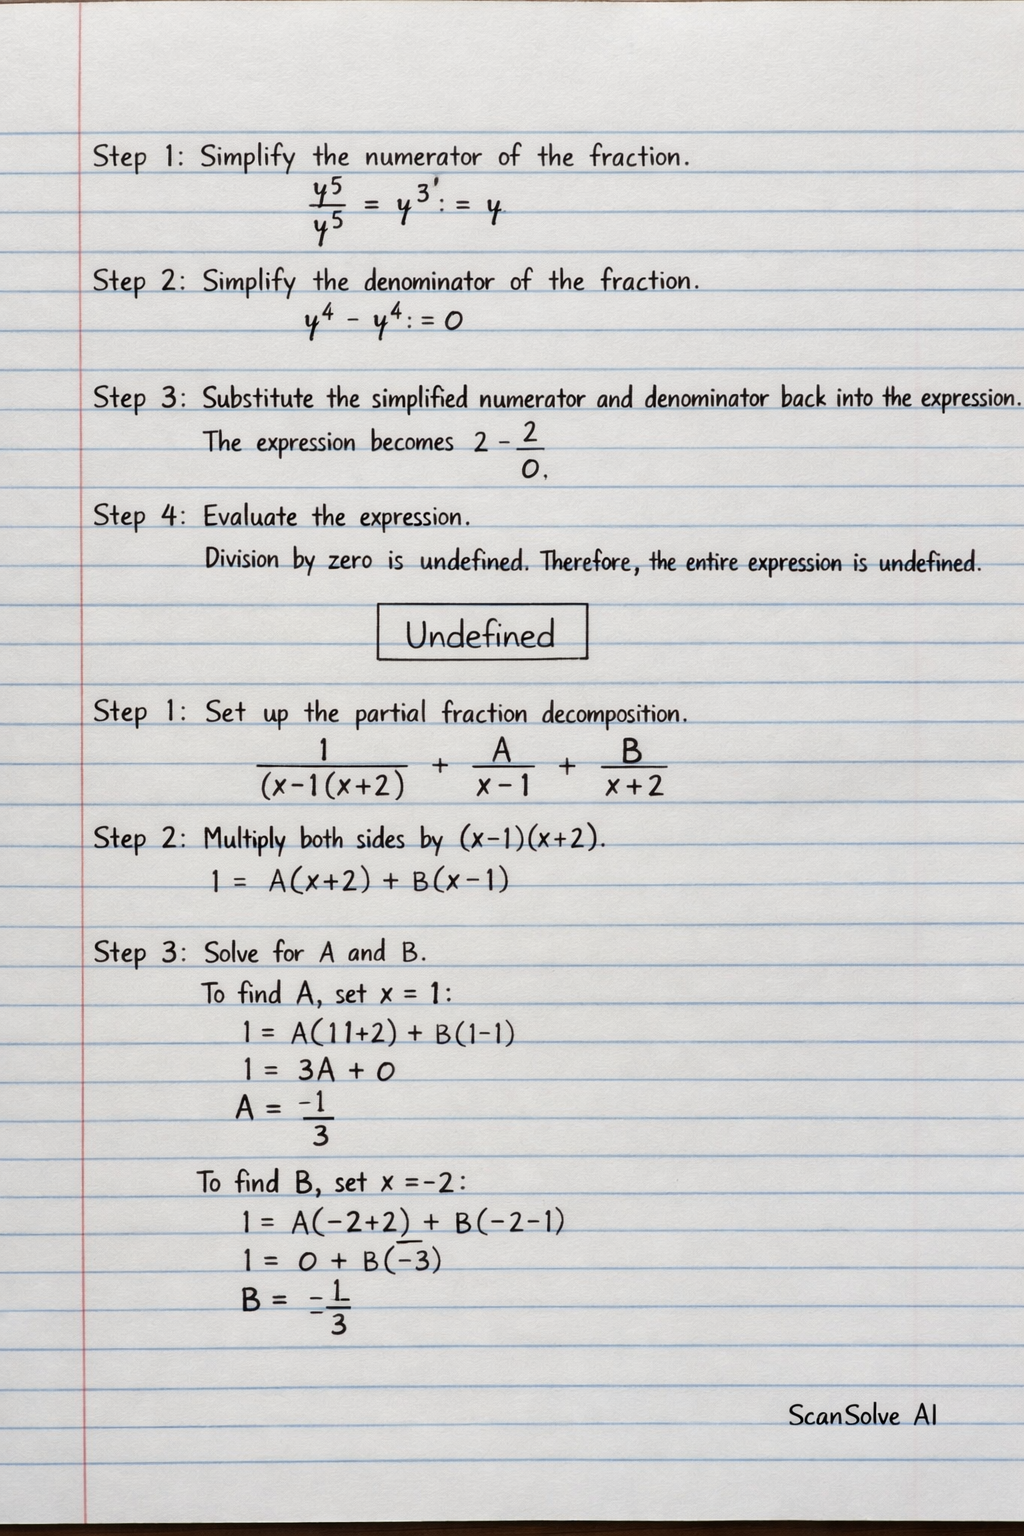 Step 1: Simplify the numerator of the fraction.
y^5/y^5 = y^3': = y
Step 2: Simplify the denominator of the fraction.
y^4 - y^4: = 0
Step 3: Substitute the simplified numerator and denominator back into the expression.
The expression becomes 2 - 2/0.
Step 4: Evaluate the expression.
Division by zero is undefined. Therefore, the entire expression is undefined.
Undefined
Step 1: Set up the partial fraction decomposition.
1/(x-1(x+2) + A/x-1 + B/x+2
Step 2: Multiply both sides by (x-1)(x+2).
1 = A(x+2) + B(x-1)
Step 3: Solve for A and B.
To find A, set x = 1:
1 = A(11+2) + B(1-1)
1 = 3A + 0
A = -1/3
To find B, set x =-2:
1 = A(-2+2) + B(-2-1)
1 = 0 + B(-3)
B = -1/3
ScanSolve AI